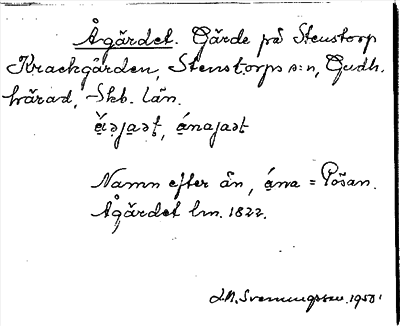 Ågärdet. Gärde på Stenstorp
Krackgården, Stenstorps s:n, Gudh.
härad, Skb. län.
ánajaət
Namn efter ån, ána = Pösan.
Ågärdet lm. 1822.
J.A. Svenungsson. 1950.